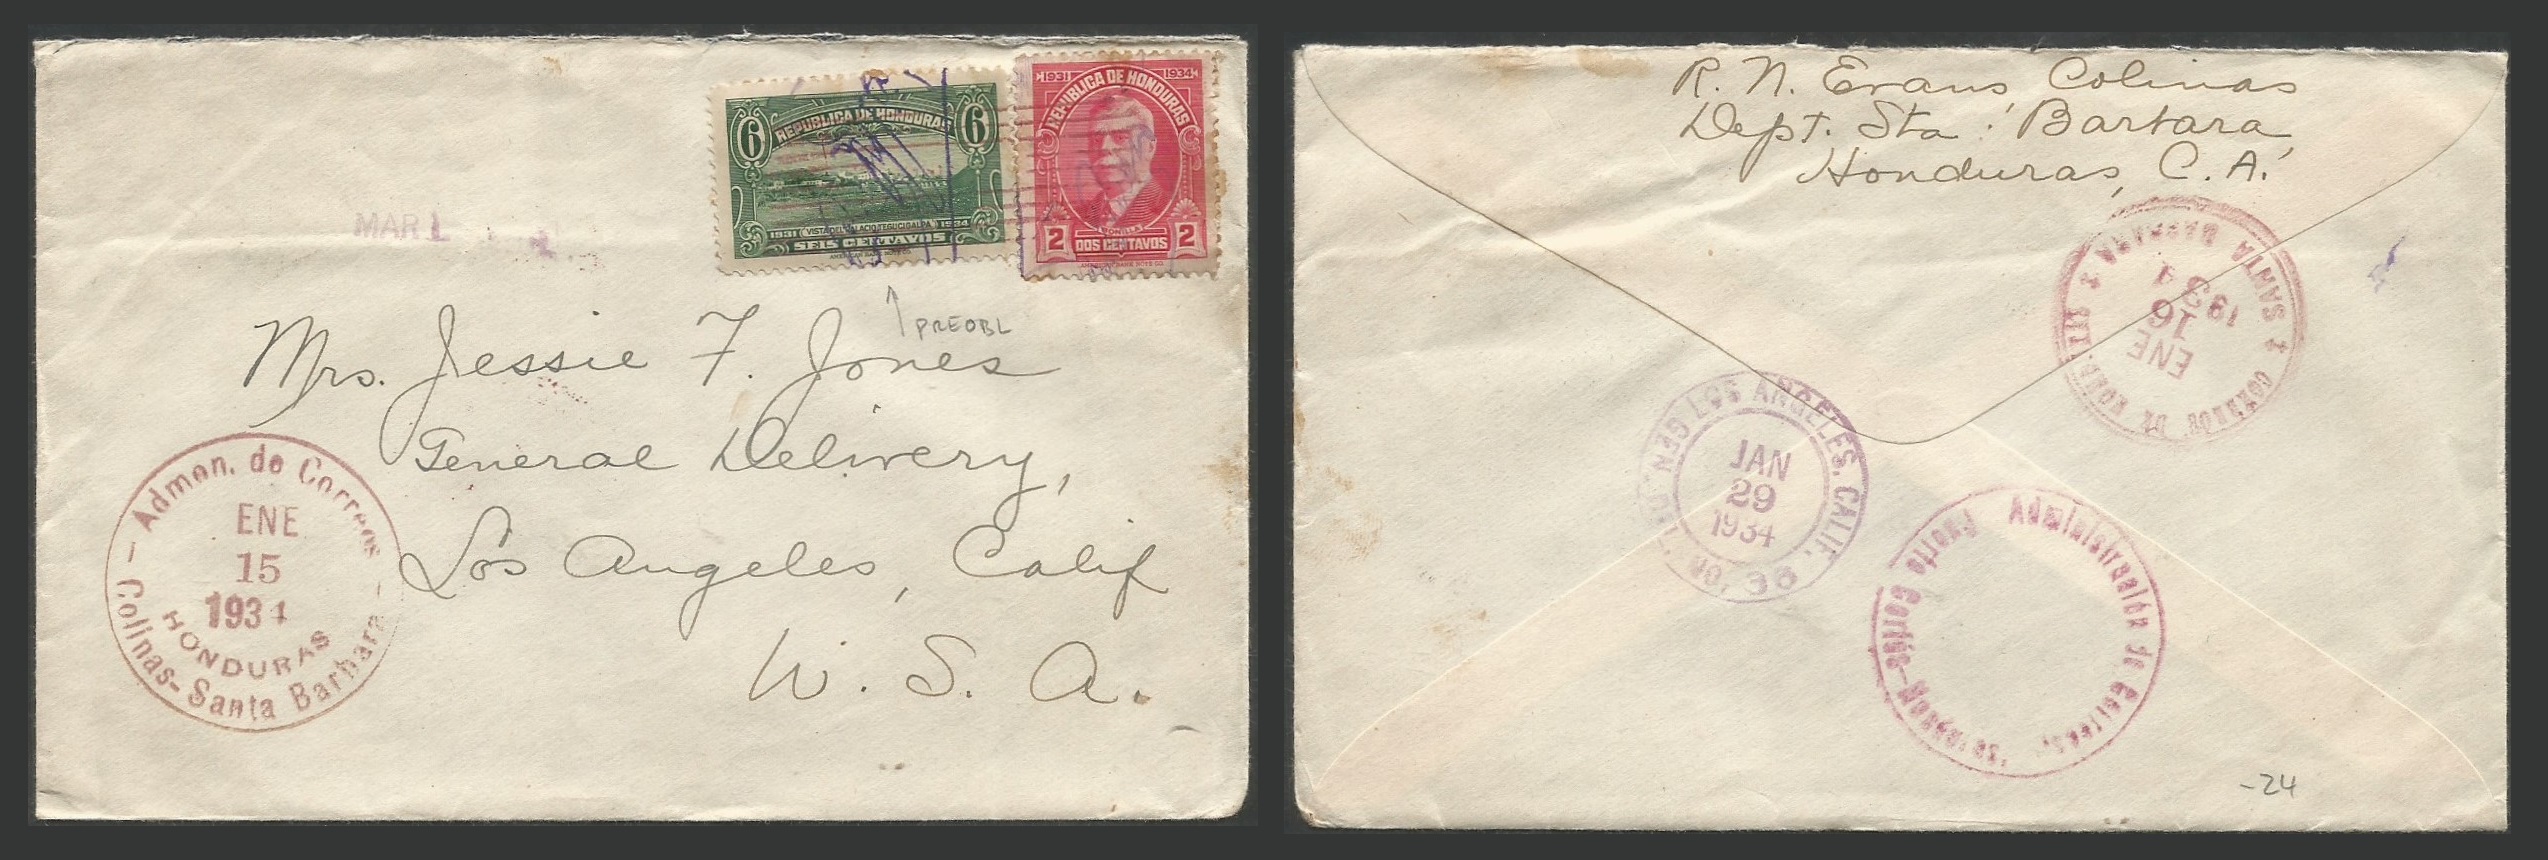 REPUBLICA DE HONDURAS
6 6
1931 VISTA DEL PALACIO TEGUCIGALPA 1934
SEIS CENTAVOS
AMERICAN BANK NOTE CO.
1931 1934
REPUBLICA DE HONDURAS
BONILLA
2 DOS CENTAVOS 2
AMERICAN BANK NOTE CO.
MAR 1
PREOBL
Mrs. Jessie F. Jones
General Delivery,
Los Angeles, Calif
U. S. A.
Admon. de Correos
ENE
15
1934
HONDURAS
Colinas-Santa Barbara
R. N. Evans Colinas
Dept. Sta. Barbara
Honduras, C. A.
SANTA BARBARA
ENE
16
1934
CORREOS DE
LOS ANGELES, CALIF.
GEN.
JAN
29
1934
36
Administración de Correos.
Puerto Cortés-
-24